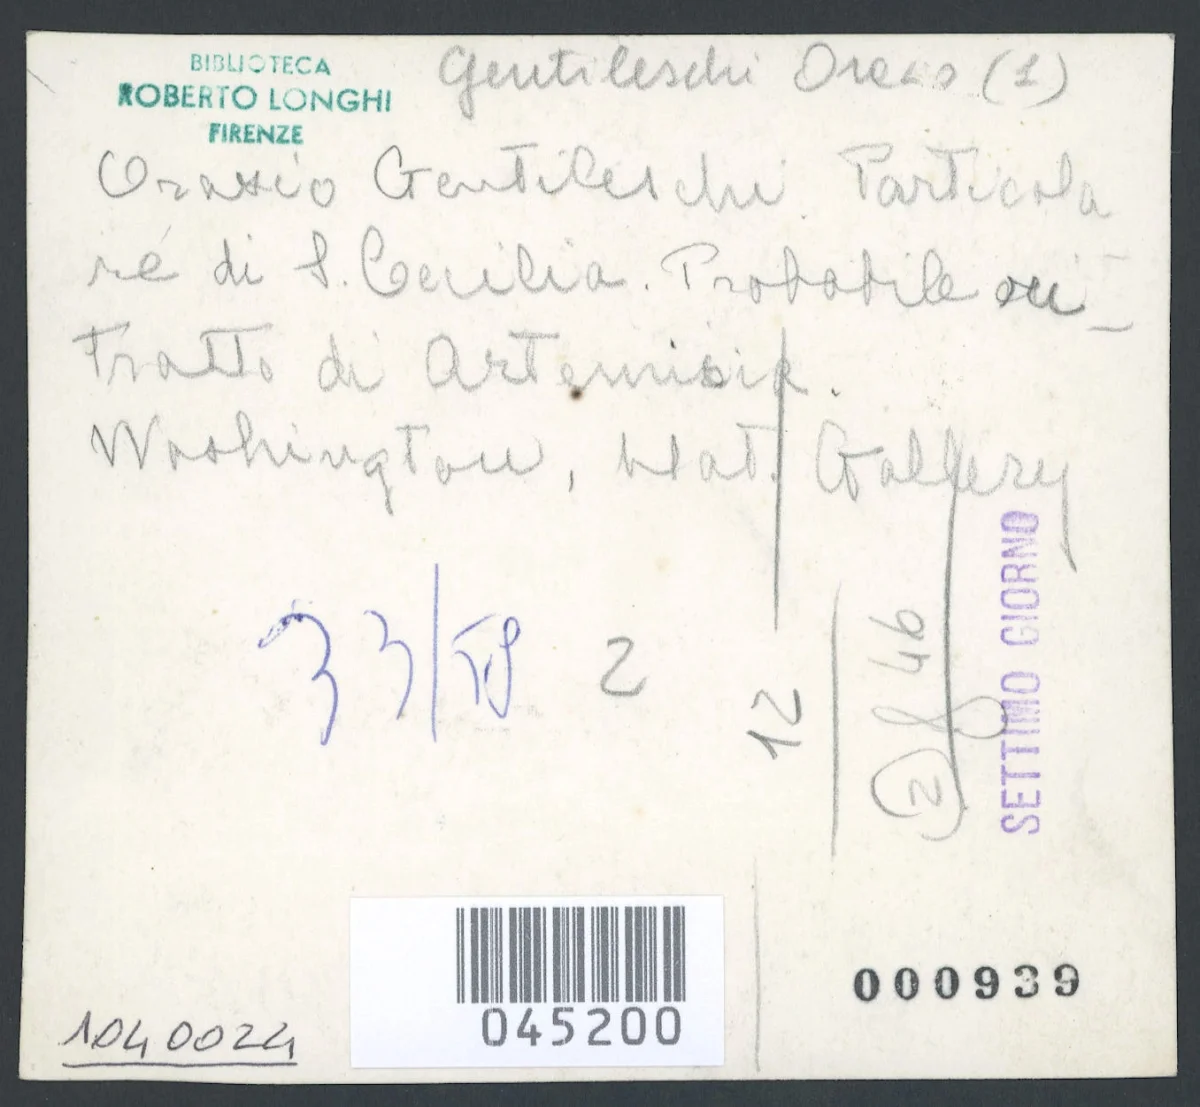 BIBLIOTECA
ROBERTO LONGHI
FIRENZE
Gentileschi Orazio (1)
Orazio Gentileschi. Particola
re di S. Cecilia. Probabile ri-
tratto di Artemisia.
Washington, Nat. Gallery
33/
2
12
46
2
SETTIMO GIORNO
000939
045200
1040024